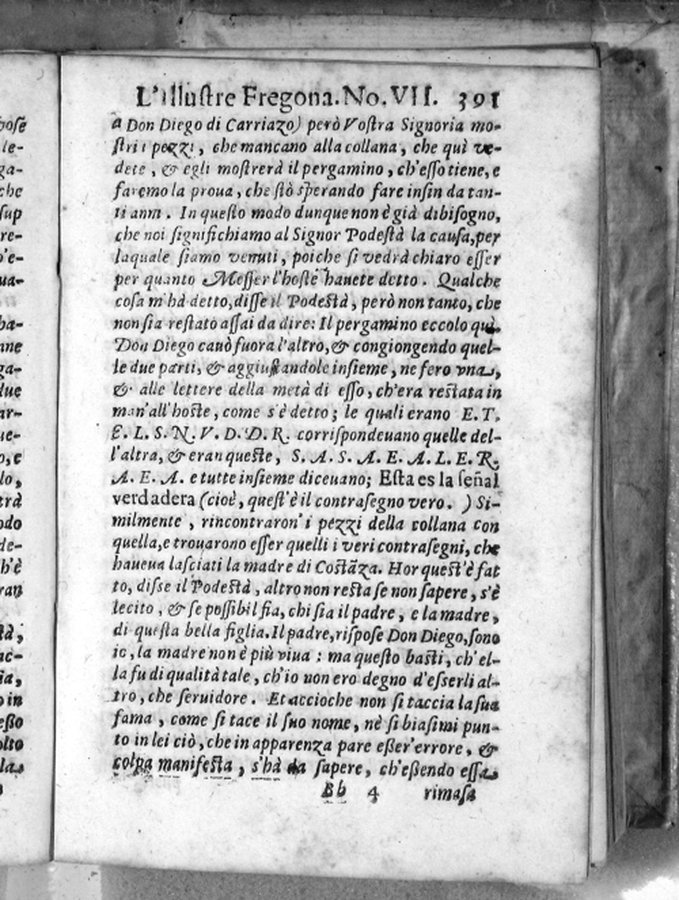 L'Illustre Fregona. No. VII. 391
a Don Diego di Carriazo) però Vostra Signoria mo-
stri i pezzi, che mancano alla collana, che quì ve-
dete, & egli mostrerà il pergamino, ch'esso tiene, e
faremo la proua, che stò sperando fare insin da tan-
ti anni. In questo modo dunque non è già dibisogno,
che noi significhiamo al Signor Podestà la causa, per
laquale siamo venuti, poiche si vedrà chiaro esser
per quanto Messer l'hoste hauete detto. Qualche
cosa m'hà detto, disse il Podestà, però non tanto, che
non sia restato assai da dire: Il pergamino eccolo quì.
Don Diego cauò fuora l'altro, & congiongendo quel-
le due parti, & aggiustandole insieme, ne fero vna,
& alle lettere della metà di esso, ch'era restata in
man'all'hoste, come s'è detto; le quali erano E. T.
E. L. S. N. V. D. D. R. corrispondeuano quelle del-
l'altra, & eran queste, S. A. S. A. E. A. L. E. R.
A. E. A. e tutte insieme diceuano; Esta es la señal
verdadera (cioè, quest'è il contrasegno vero.) Si-
milmente, rincontraron' i pezzi della collana con
quella, e trouarono esser quelli i veri contrasegni, che
haueua lasciati la madre di Costãza. Hor quest'è fat
to, disse il Podestà, altro non resta se non sapere, s'è
lecito, & se possibil fia, chi sia il padre, e la madre,
di questa bella figlia. Il padre, rispose Don Diego, sono
io, la madre non è più viua: ma questo basti, ch'el-
la fu di qualità tale, ch'io non ero degno d'esserli al-
tro, che seruidore. Et accioche non si taccia la sua
fama, come si tace il suo nome, nè si biasimi pun-
to in lei ciò, che in apparenza pare esser'errore, &
colpa manifesta, s'hà da sapere, ch'essendo essa
Bb 4 rimasa